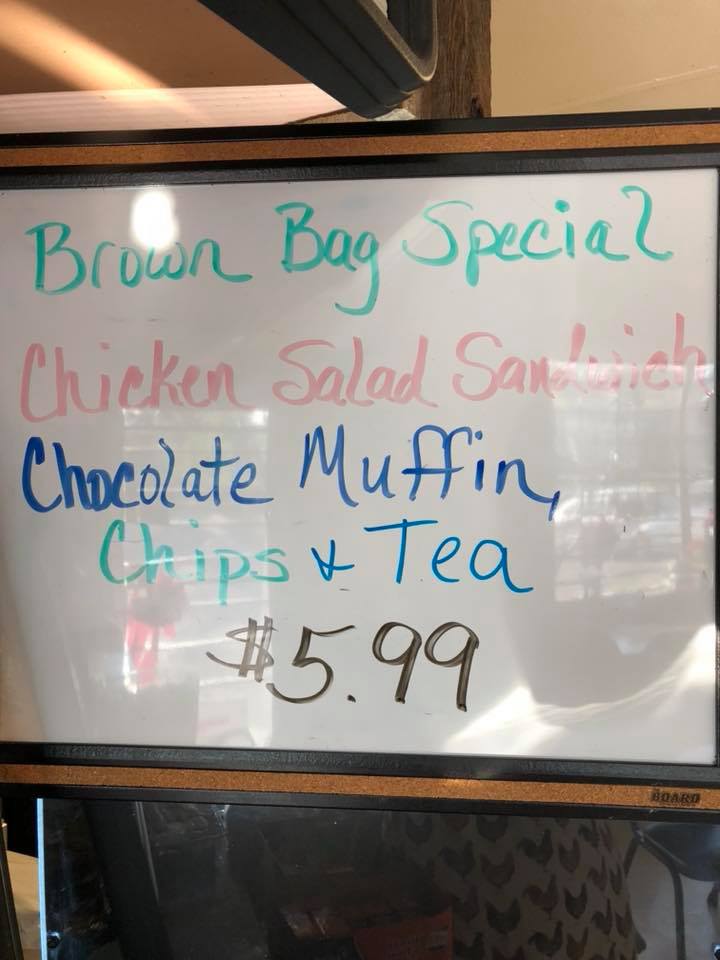 Brown Bag Special
Chicken Salad Sandwich
Chocolate Muffin,
Chips & Tea
$5.99
BOARD